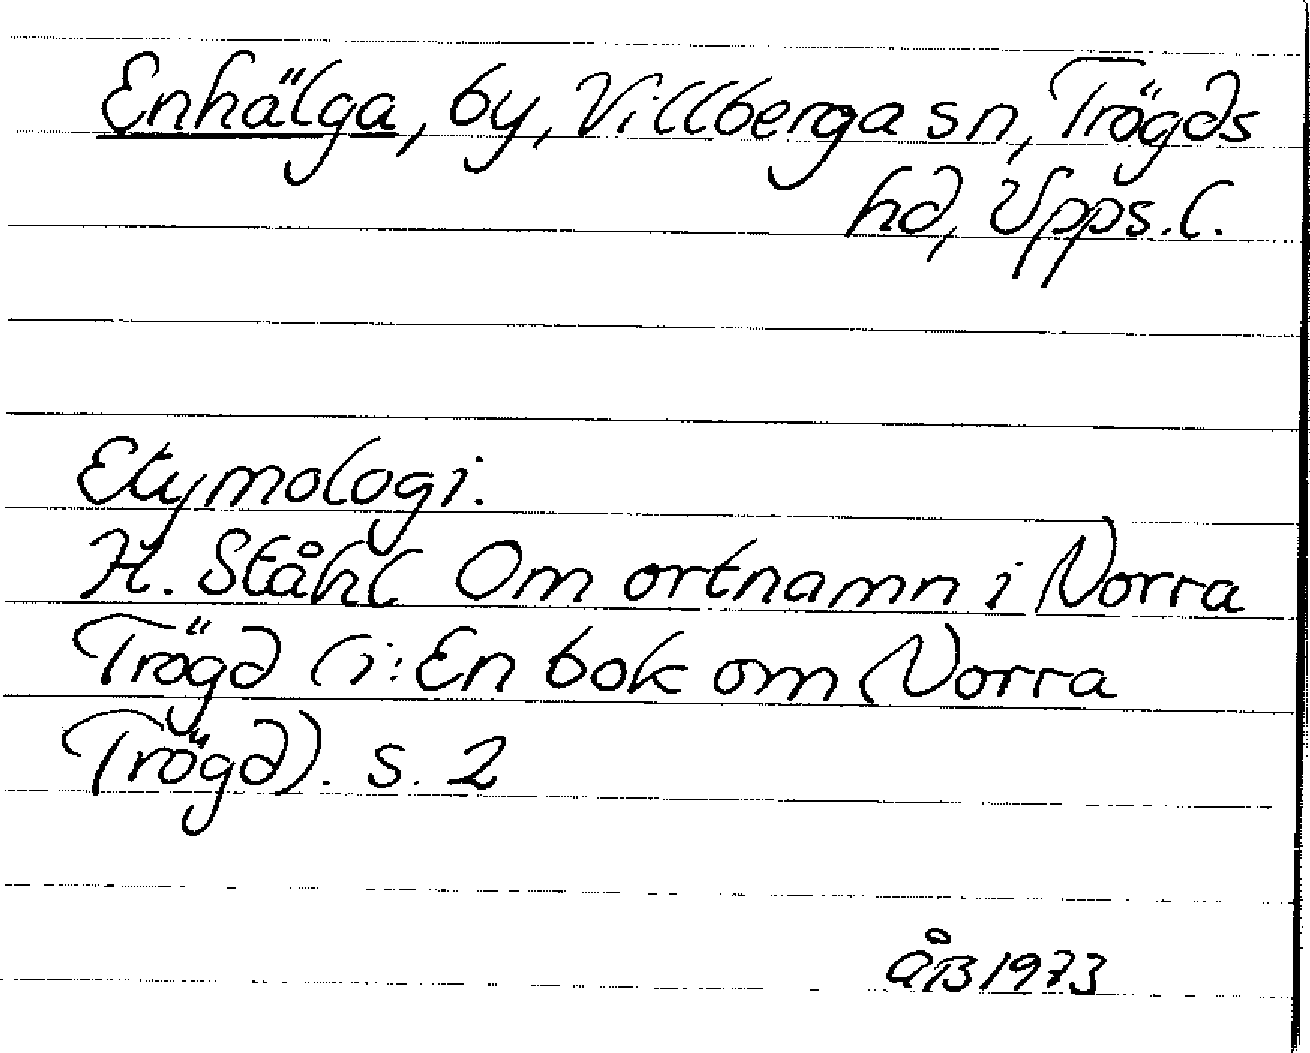 Enhälga, by, Villberga sn, Trögds
hd, Upps.l.
Etymologi.
H. Ståhl Om ortnamn i Norra
Trögd (i: En bok om Norra
Trögd). s. 2
ÅB 1973